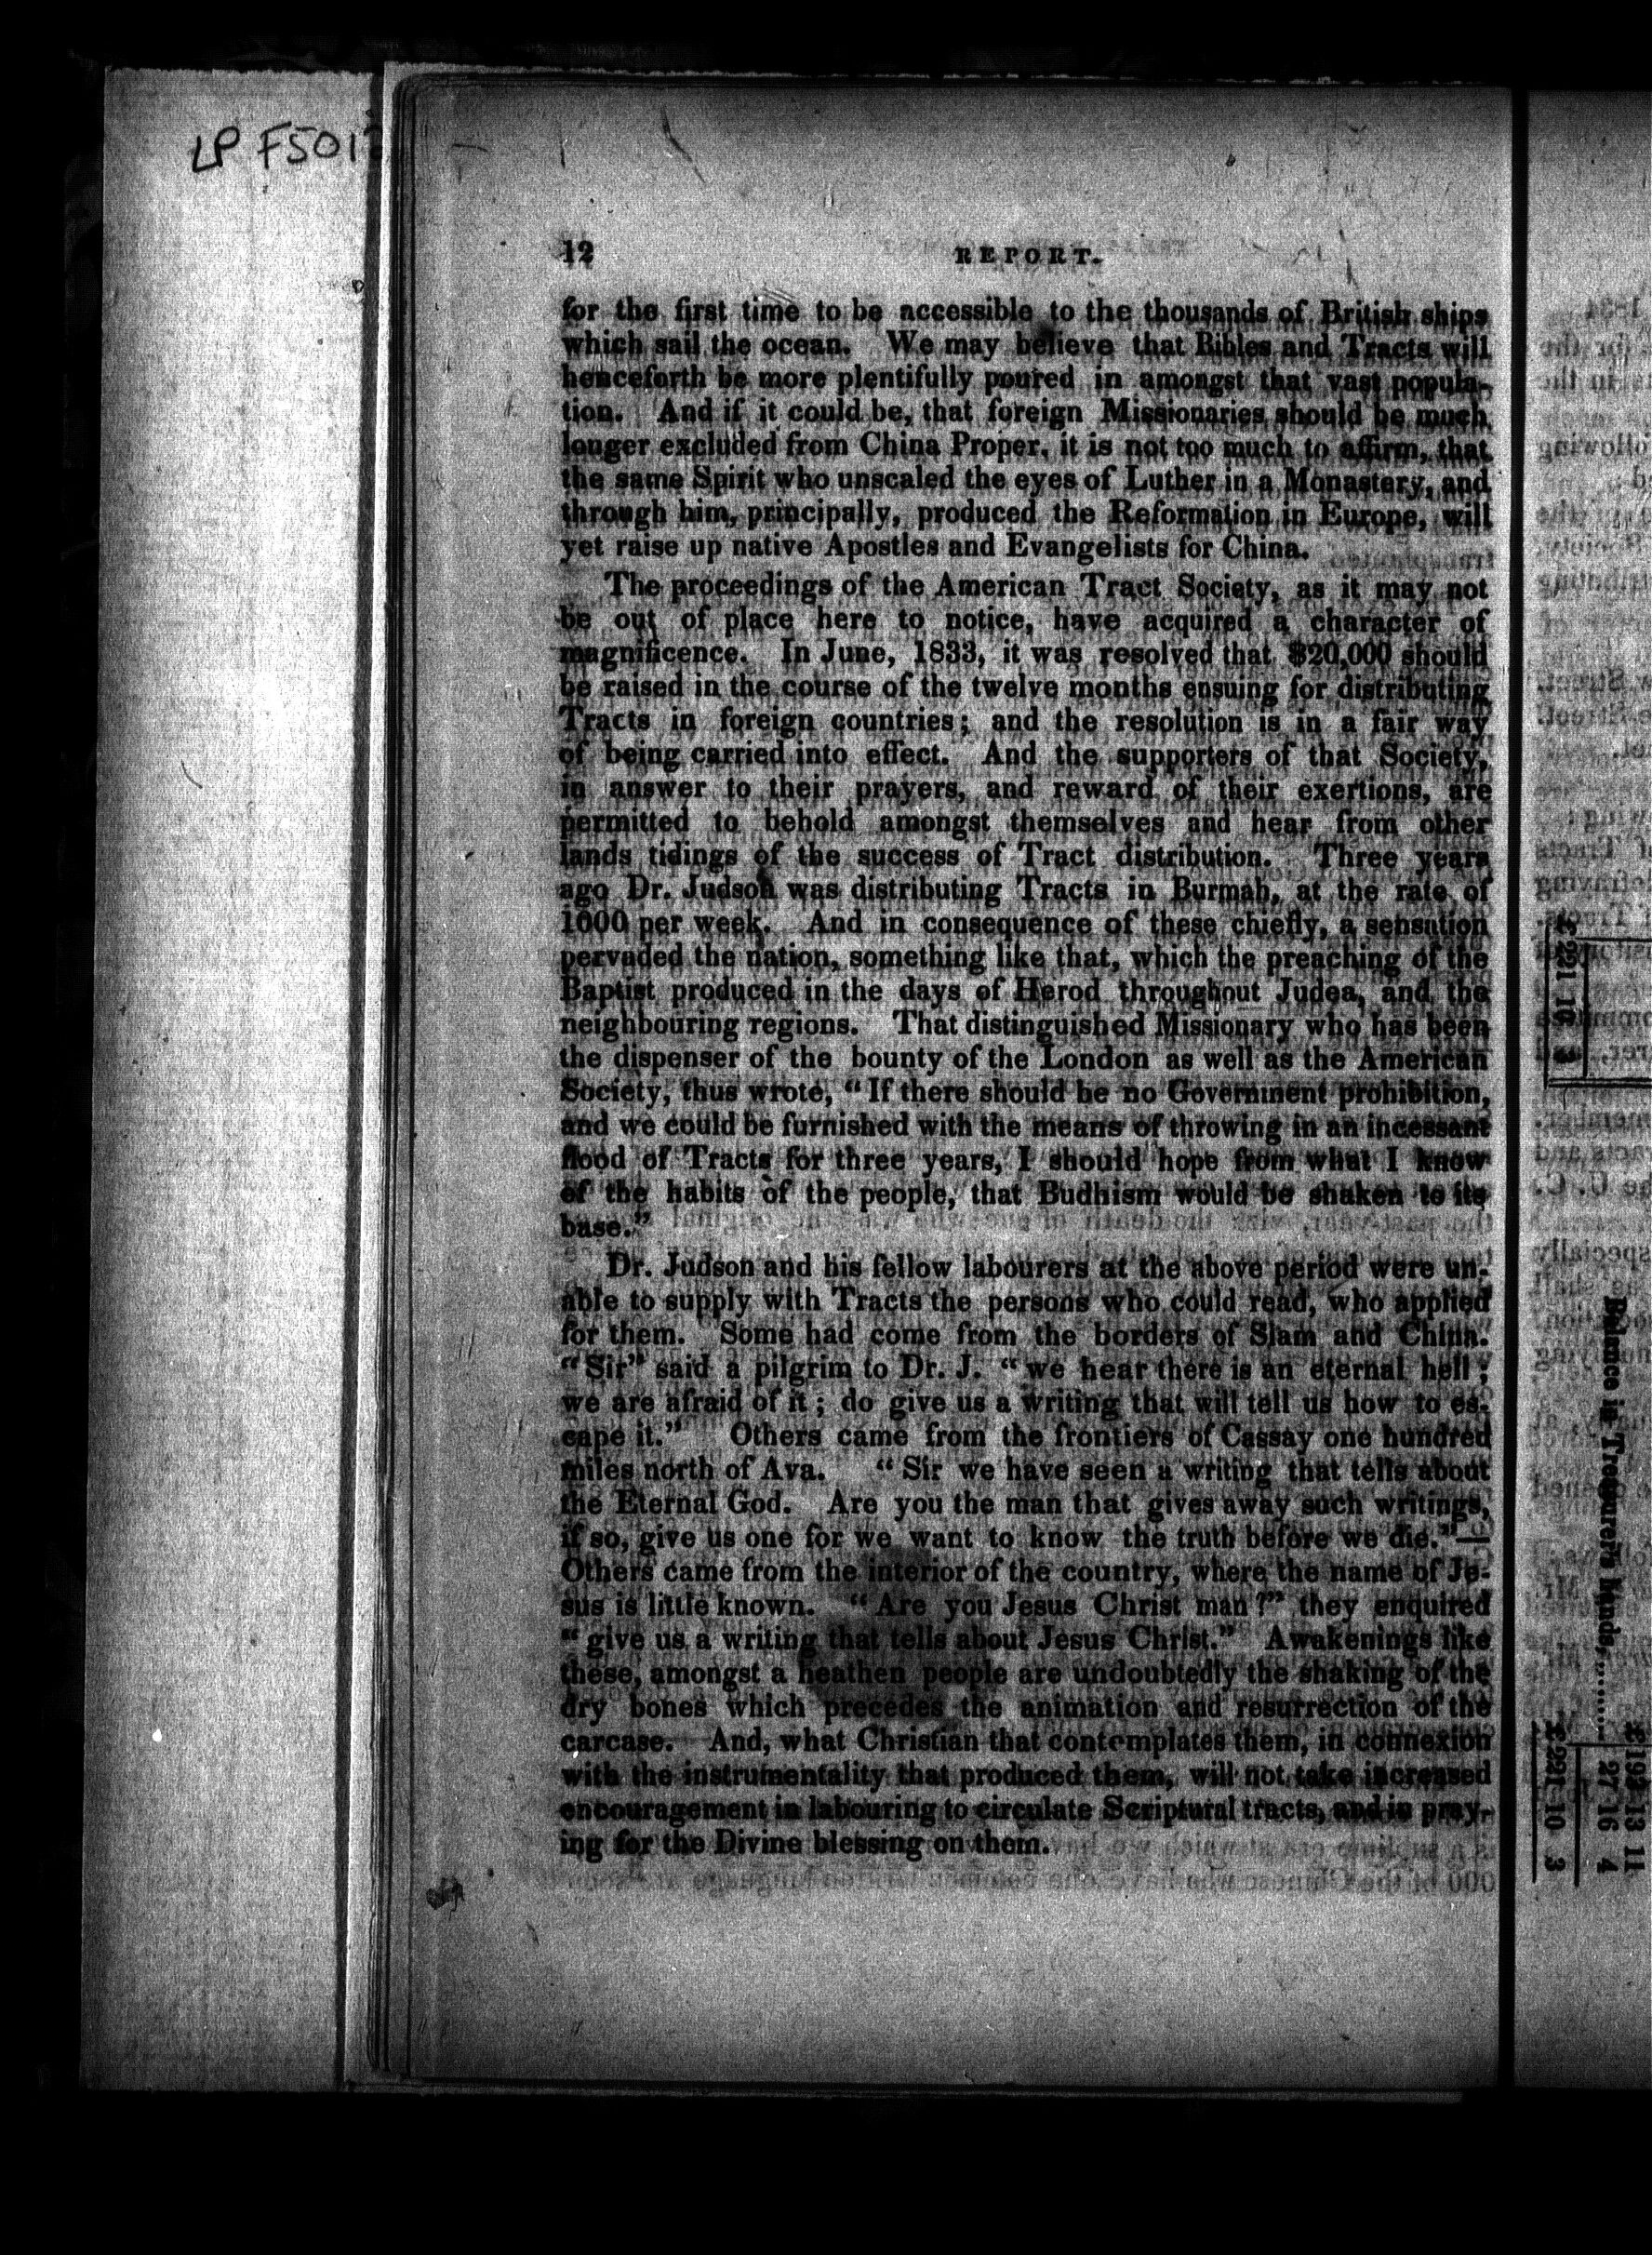 LP F5012
12 REPORT.
for the first time to be accessible to the thousands of British ships
which sail the ocean. We may believe that Bibles and Tracts will
henceforth be more plentifully poured in amongst that vast popula-
tion. And if it could be, that foreign Missionaries should be much
longer excluded from China Proper, it is not too much to affirm, that
the same Spirit who unscaled the eyes of Luther in a Monastery, and
through him, principally, produced the Reformation in Europe, will
yet raise up native Apostles and Evangelists for China.
The proceedings of the American Tract Society, as it may not
be out of place here to notice, have acquired a character of
magnificence. In June, 1833, it was resolved that $20,000 should
be raised in the course of the twelve months ensuing for distributing
Tracts in foreign countries; and the resolution is in a fair way
of being carried into effect. And the supporters of that Society,
in answer to their prayers, and reward of their exertions, are
permitted to behold amongst themselves and hear from other
lands tidings of the success of Tract distribution. Three years
ago Dr. Judson was distributing Tracts in Burmah, at the rate of
1000 per week. And in consequence of these chiefly, a sensation
pervaded the nation, something like that, which the preaching of the
Baptist produced in the days of Herod throughout Judea, and the
neighbouring regions. That distinguished Missionary who has been
the dispenser of the bounty of the London as well as the American
Society, thus wrote, "If there should be no Government prohibition,
and we could be furnished with the means of throwing in an incessant
flood of Tracts for three years, I should hope from what I know
of the habits of the people, that Budhism would be shaken to its
base."
Dr. Judson and his fellow labourers at the above period were un-
able to supply with Tracts the persons who could read, who applied
for them. Some had come from the borders of Siam and China.
"Sir" said a pilgrim to Dr. J. "we hear there is an eternal hell;
we are afraid of it; do give us a writing that will tell us how to es-
cape it." Others came from the frontiers of Cassay one hundred
miles north of Ava. "Sir we have seen a writing that tells about
the Eternal God. Are you the man that gives away such writings,
if so, give us one for we want to know the truth before we die."—
Others came from the interior of the country, where the name of Je-
sus is little known. "Are you Jesus Christ man?" they enquired
"give us a writing that tells about Jesus Christ." Awakenings like
these, amongst a heathen people are undoubtedly the shaking of the
dry bones which precedes the animation and resurrection of the
carcase. And, what Christian that contemplates them, in connexion
with the instrumentality that produced them, will not take increased
encouragement in labouring to circulate Scriptural tracts, and in pray-
ing for the Divine blessing on them.
£221 10 3
£193 13 11
Balance in Treasurer's hands,....... 27 16 4
£221 10 3